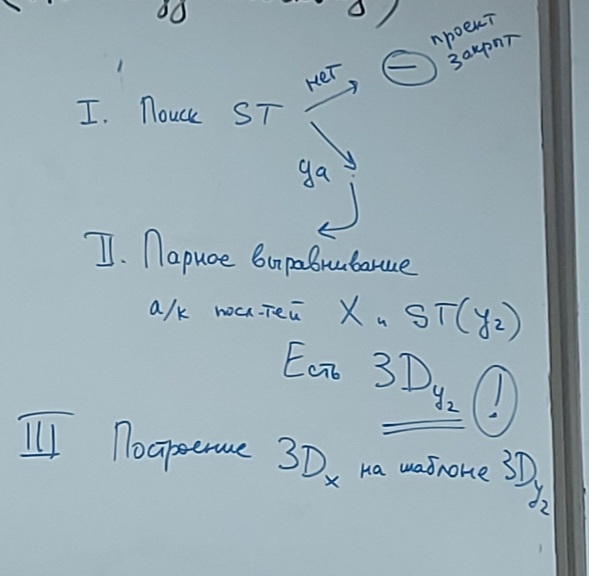 I. Поиск ST
нет
проект
закрыт
да
II. Парное выравнивание
а/к посл-тей X и ST(y₂)
Есть 3Dy₂ !
III Построение 3Dx на шаблоне 3Dy₂